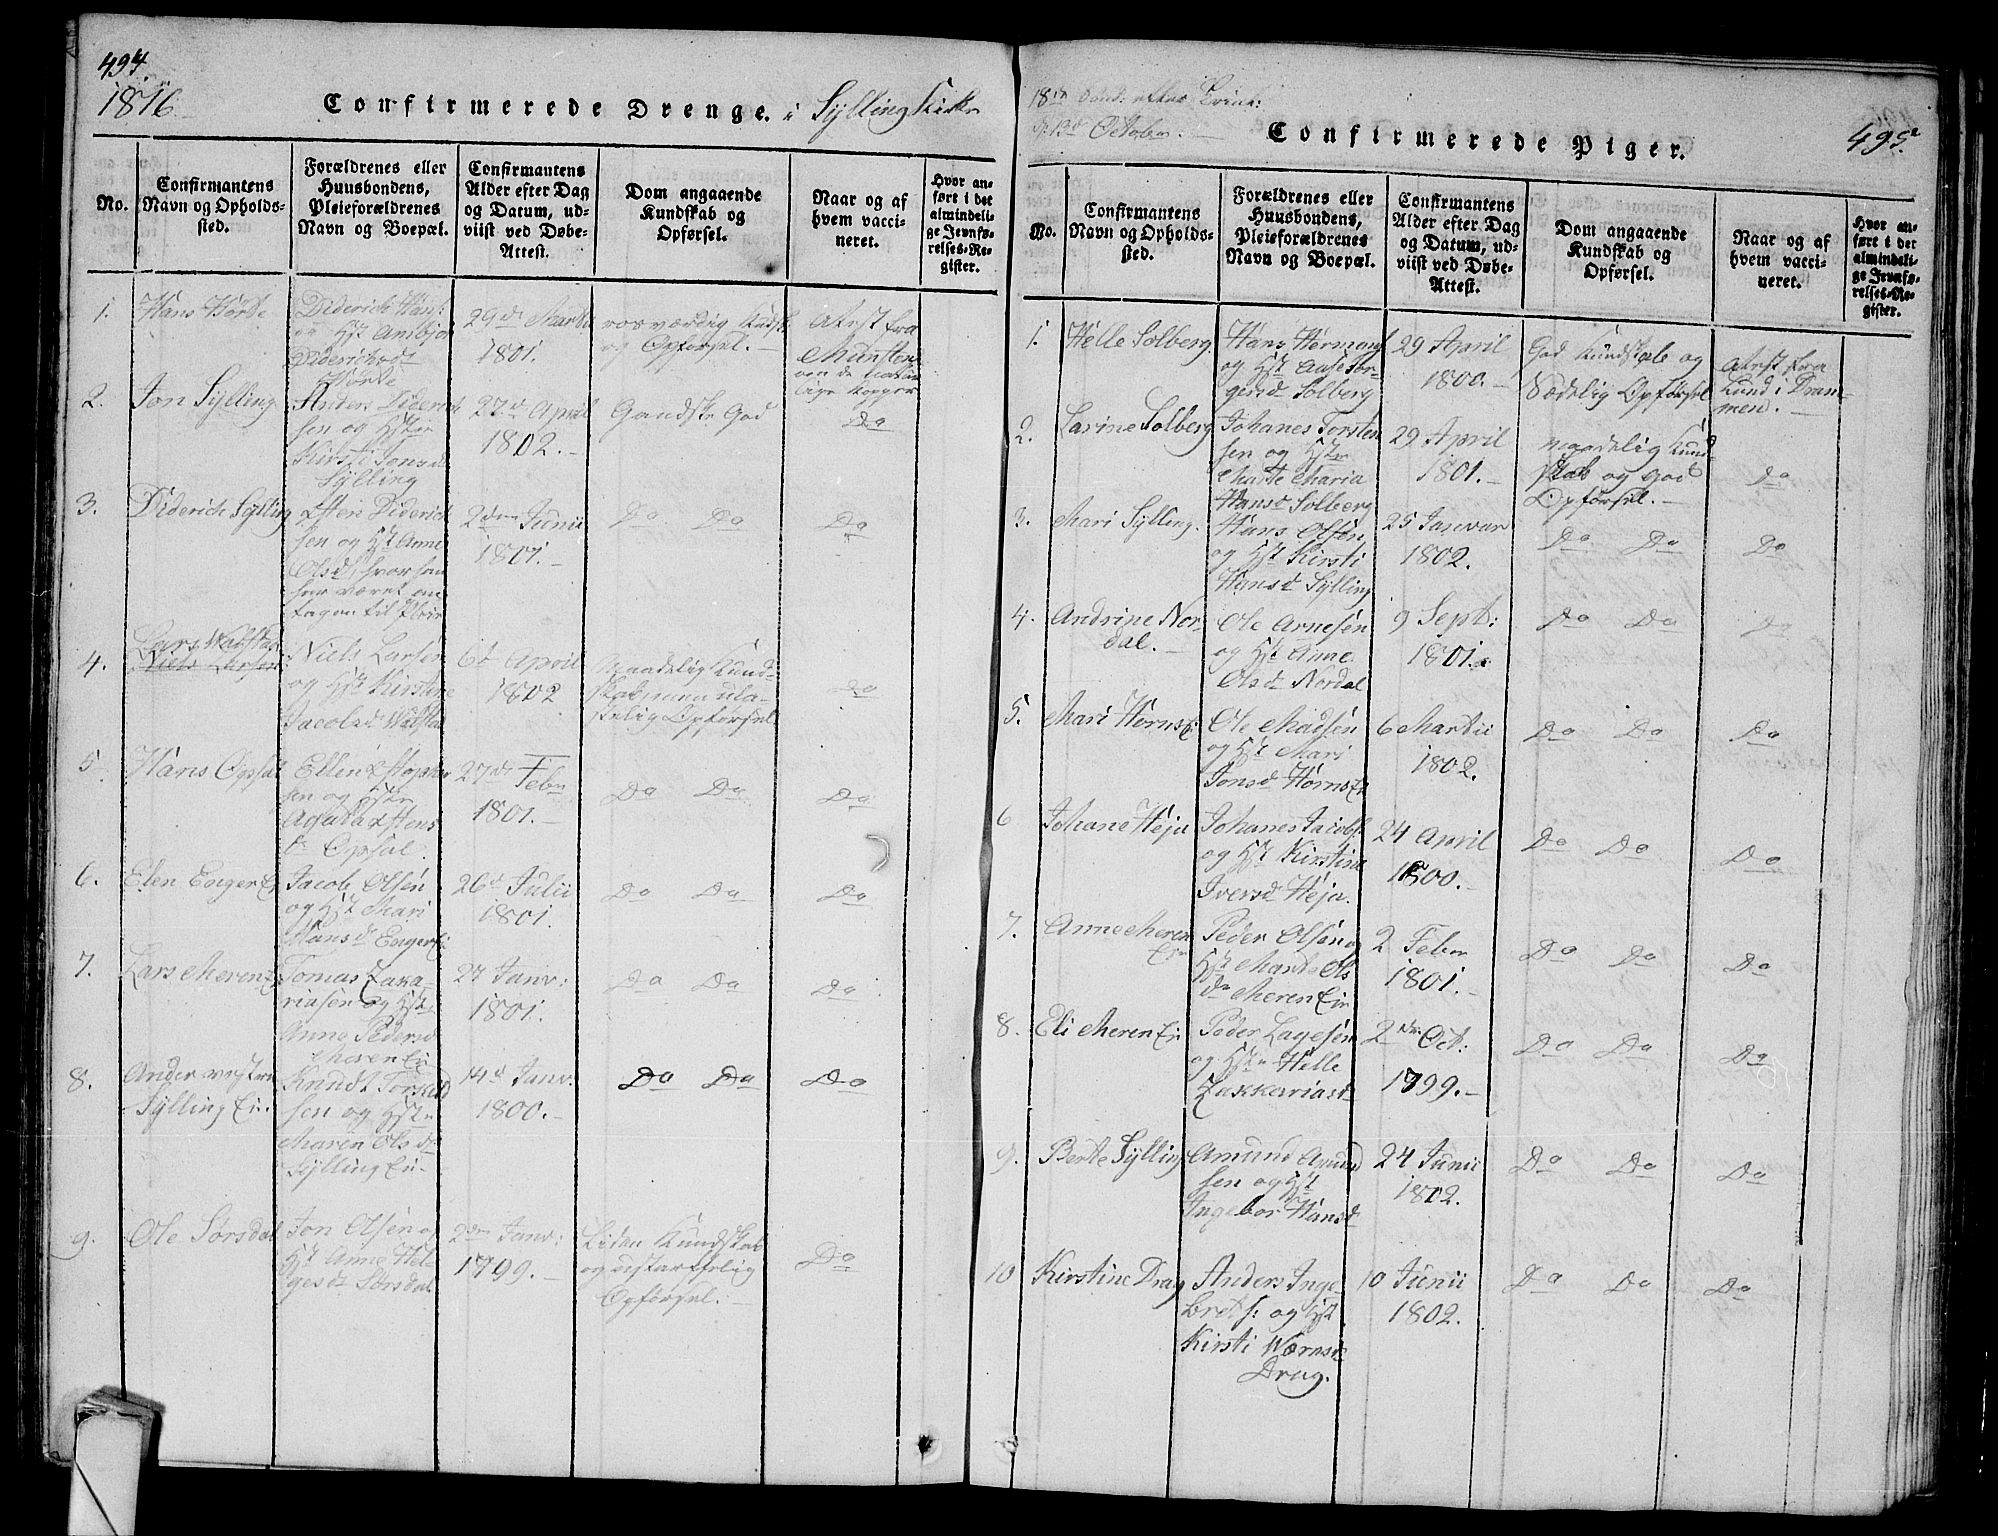 494.
1816
Confirmerede Drenge. i Sylling Kirke
No.
Confirmantens Navn og Opholds-sted.
Forældrenes eller Huusbondens, Pleieforældrenes Navn og Boepæl.
Confirmantens Alder efter Dag og Datum, ud-viist ved Døbe-Attest.
Dom angaaende Kundskab og Opførsel.
Naar og af hvem vacci-neret.
Hvor an-ført i det almindeli-ge Jevnfø-relses-Re-gister.
1.
Hans Hørde
Diderich Hans:
og Hst
Diderichsdt
Hørde
29de Martii
1801.
rosværdig Kundsk
og Opførsel.
Atest fra
2.
Jon Sylling
Anders Diderich
sen og Hstr
Kirsti Jonsdt
Sylling
27de April
1802.
Gandske God
Do
3.
Diderich Sylling
Diderich
sen og Hst Anne
Olsdt, hvor han
har været an
tagen til Pleie
2den Junii
1801.
Do Do
Do
4.
Lars
Niels Larsen
Niels Larsen
og Hst Kirstine
Jacobsd
6te April
1802
Maadelig Kund-
skab men ula-
stelig Opførsel
Do
5.
Hans Opsal
Ellen
sen og Hstr
Opsal.
27de Febr
1801.
Do Do
Do
6.
Elen Enger Ei
Jacob Olsen
og Hst Mari
Hansd Enger Ei
26de Julii
1801.
Do Do
Do
7.
Lars Meren Ei
Tomas Zaka-
riasen og Hst
Anne Pedersd
Meren Ei
27 Janv:
1801.
Do Do
Do
8.
Ander vestre
Sylling Ei.
Knudt
sen og Hstr
Maren Olsd
Sylling Ei.
14de Janv.
1800.
Do Do
Do
9.
Ole Sørsdal
Jon Olsen og
Hst Anne Hel-
gesdt Sørsdal
2den Janv:
1799.
Liden Kundskab
og ustarffelig
Opførsel.
Do
18de Sønd: efter Trinit:
d: 13de October.
Confirmerede Piger.
495.
No.
Confirmantens Navn og Opholds-sted.
Forældrenes eller Huusbondens, Pleieforældrenes Navn og Boepæl.
Confirmantens Alder efter Dag og Datum, ud-viist ved Døbe-Attest.
Dom angaaende Kundskab og Opførsel.
Naar og af hvem vacci-neret.
Hvor an-ført i det almindeli-ge Jevnfø-relses-Re-gister.
1.
Helle Solberg.
Hans
og Hst Aase Jør-
gensd Solberg
29 April
1800.
God Kundskab og
Sædelig Opførsel
Atest fra
Lund i Dram-
men.
2.
Larine Solberg
Johanes Torsten
sen og Hstr
Marte Maria
Hansd Solberg
29 April
1801.
maadelig Kund
skab og god
Opførsel.
Do
3.
Mari Sylling.
Hans Olsen
og Hst Kirsti
Hansd Sylling
25 Januar
1802.
Do Do
Do
4.
Andrine Nor-
dal.
Ole Arnesen
og Hst Anne
Olsd Nordal
9 Sept:
1801.
Do Do
Do
5.
Mari Horns Ei
Ole Madsen
og Hst Mari
Jonsd Horns Ei
6 Martii
1802.
Do Do
Do
6
Johane Heja
Johanes Jacobs:
og Hst Kirstine
Iversd Heja.
24 April
1800.
Do Do
Do
7.
Anne Meren
Ei
Peder Olsen og
Hst Marte Ols
dr Meren Ei
2 Febr
1801.
Do Do
Do
8.
Eli Meren Ei
Peder Lagesen
og Hstr Helle
Zakkariasd
2den Oct:
1799.
Do Do
Do
9.
Berte Sylling
Amund Amund
sen og Hst
Ingebor Hansd
24 Junii
1802.
Do Do
Do
10
Kirstine Drag
Anders Inge-
brets: og Hst
Kirsti Wærnsd
Drag.
10 Junii
1802.
Do Do
Do